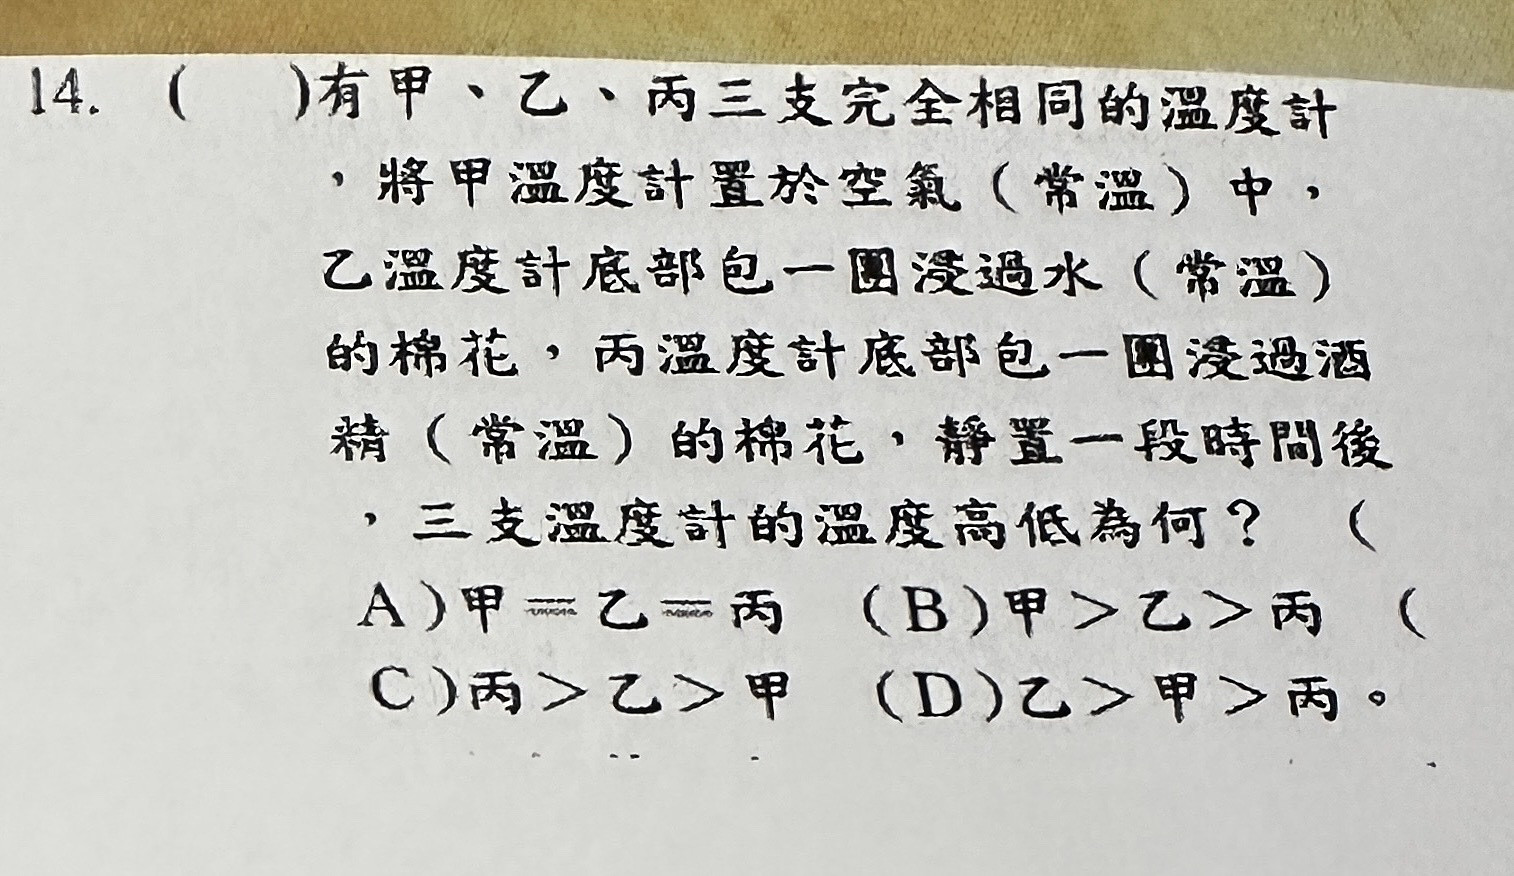 14. (　　)有甲、乙、丙三支完全相同的溫度計
，將甲溫度計置於空氣（常溫）中，
乙溫度計底部包一團浸過水（常溫）
的棉花，丙溫度計底部包一團浸過酒
精（常溫）的棉花，靜置一段時間後
，三支溫度計的溫度高低為何？（
A）甲＝乙＝丙　（B）甲＞乙＞丙　（
C）丙＞乙＞甲　（D）乙＞甲＞丙。